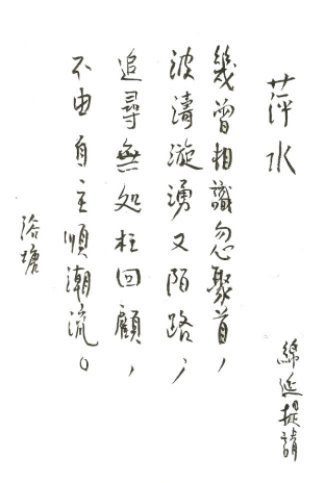 萍水
幾曾相識忽聚首,
波濤漩湧又陌路,
追尋無処枉回顧,
不由自主順潮流。
洛塘
綿延提請